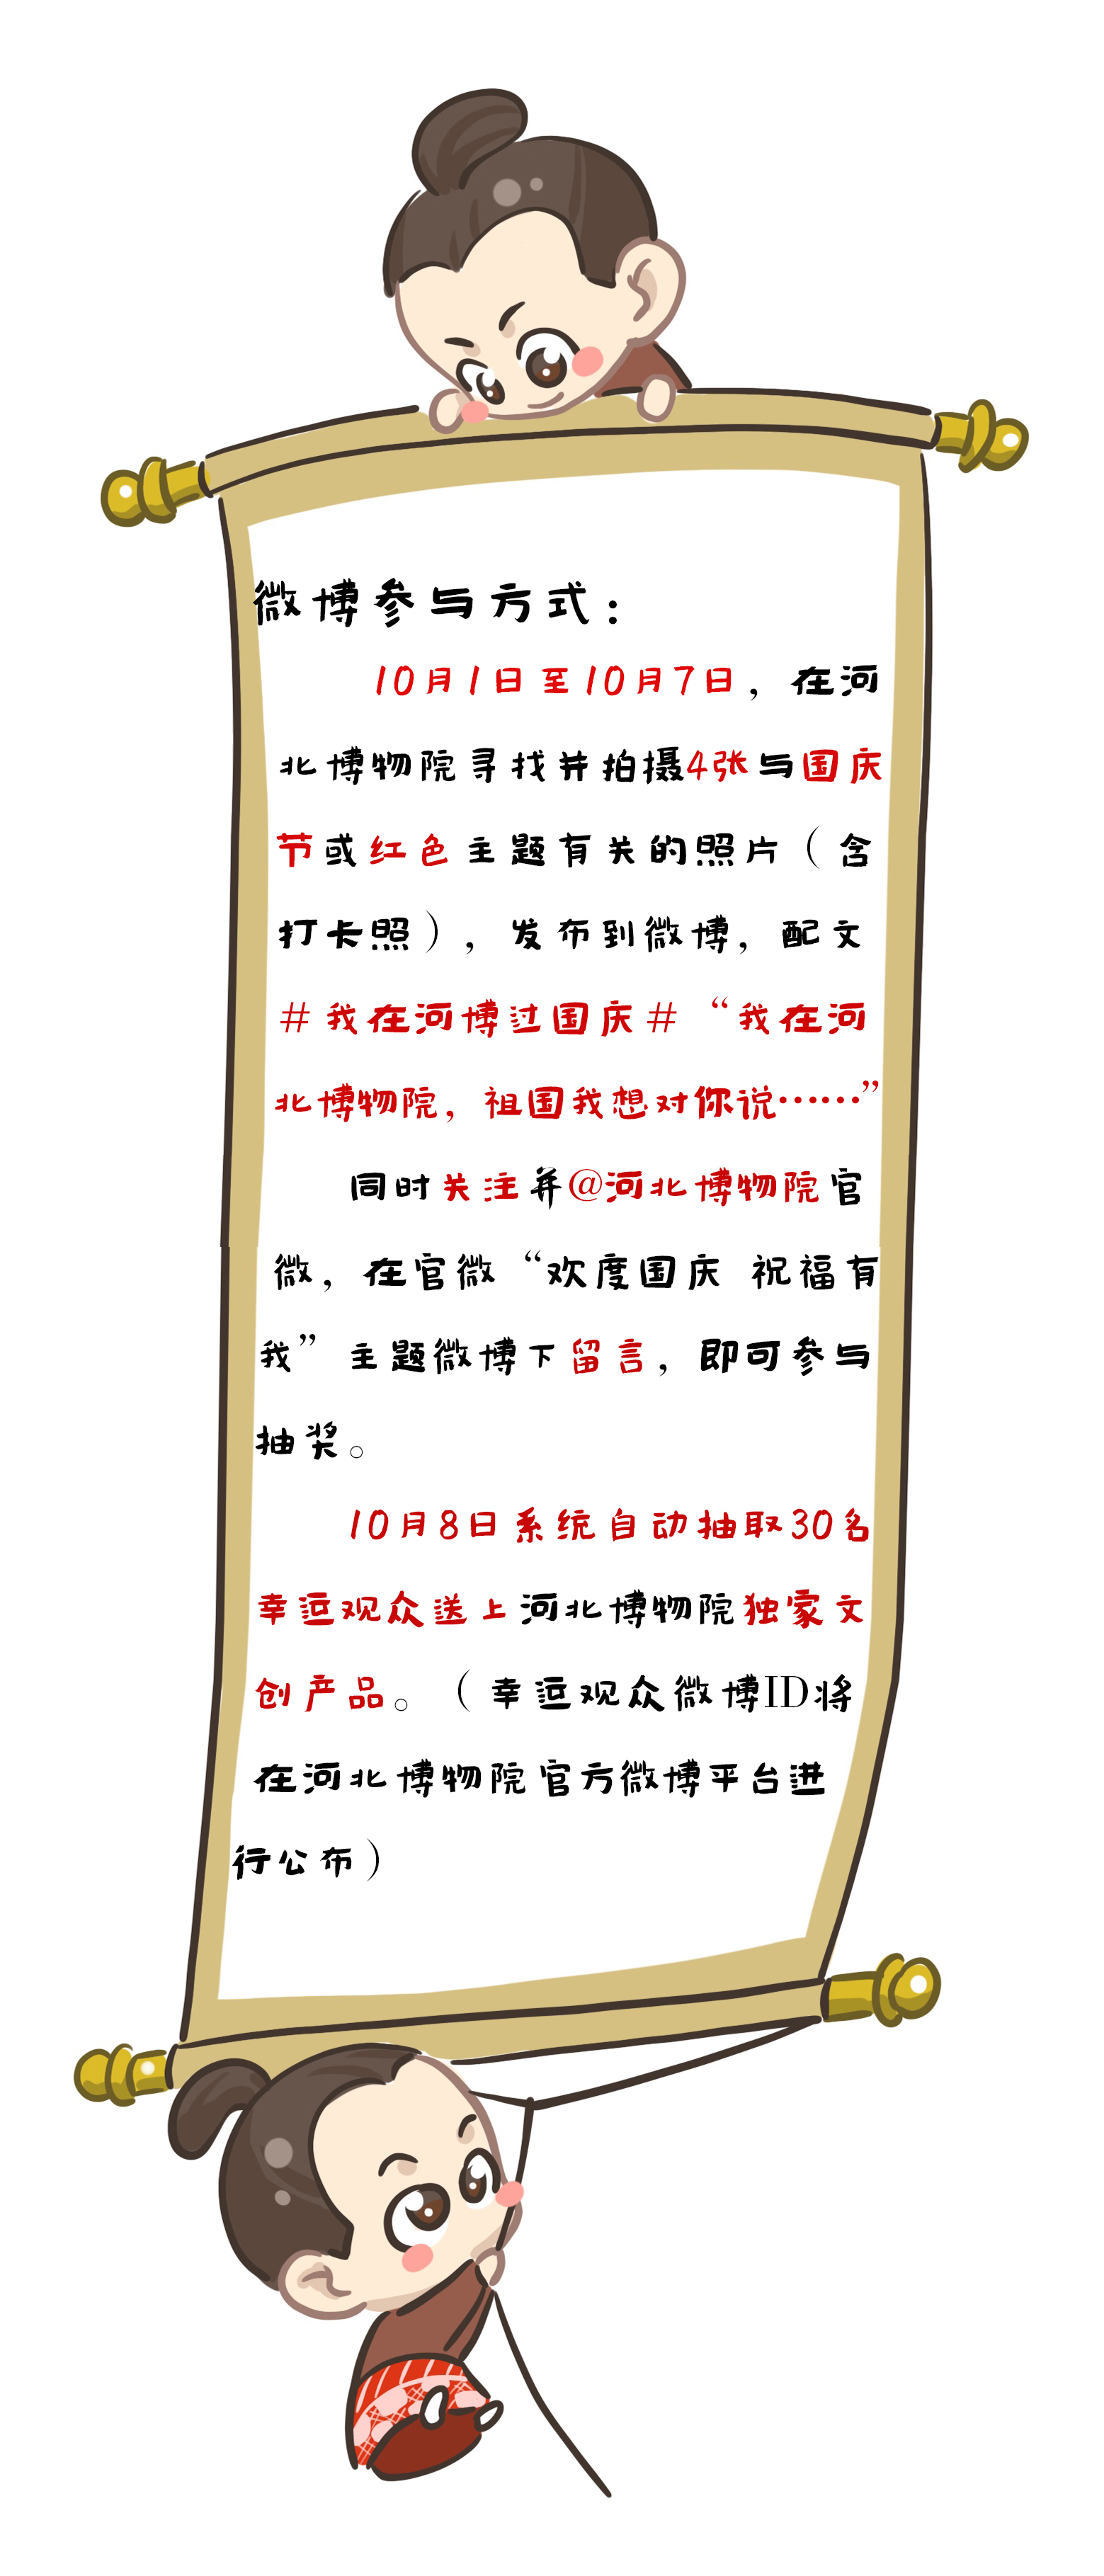 微博参与方式：
10月1日至10月7日，在河
北博物院寻找并拍摄4张与国庆
节或红色主题有关的照片（含
打卡照），发布到微博，配文
#我在河博过国庆#“我在河
北博物院，祖国我想对你说……”
同时关注并@河北博物院官
微，在官微“欢度国庆 祝福有
我”主题微博下留言，即可参与
抽奖。
10月8日系统自动抽取30名
幸运观众送上河北博物院独家文
创产品。（幸运观众微博ID将
在河北博物院官方微博平台进
行公布）